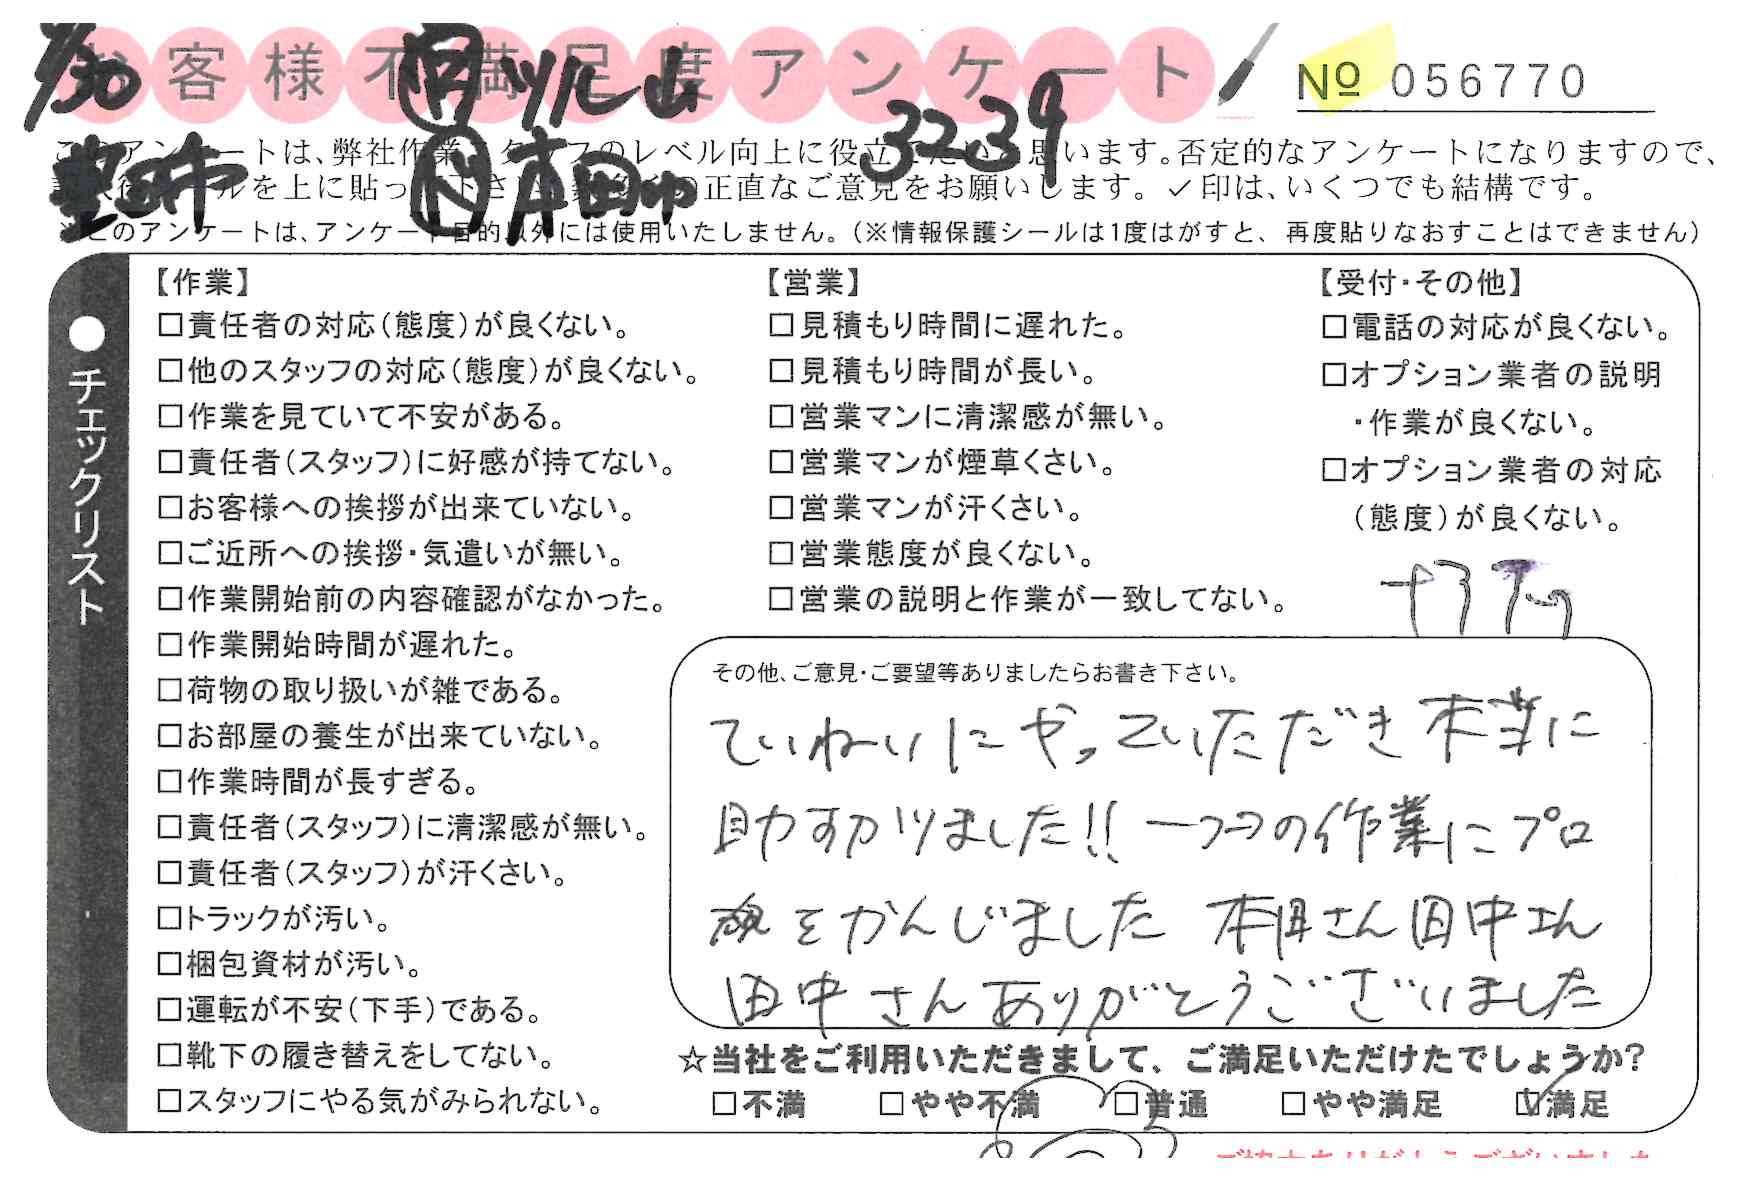 お客様不満足度アンケート
/30 ツル山 № 056770
3239
このアンケートは、弊社作業スタッフのレベル向上に役立てたいと思います。否定的なアンケートになりますので、
シールを上に貼って下さい。お客様の正直なご意見をお願いします。✓印は、いくつでも結構です。
本田中
※このアンケートは、アンケート目的以外には使用いたしません。(※情報保護シールは1度はがすと、再度貼りなおすことはできません)
●チェックリスト
【作業】
□責任者の対応(態度)が良くない。
□他のスタッフの対応(態度)が良くない。
□作業を見ていて不安がある。
□責任者(スタッフ)に好感が持てない。
□お客様への挨拶が出来ていない。
□ご近所への挨拶・気遣いが無い。
□作業開始前の内容確認がなかった。
□作業開始時間が遅れた。
□荷物の取り扱いが雑である。
□お部屋の養生が出来ていない。
□作業時間が長すぎる。
□責任者(スタッフ)に清潔感が無い。
□責任者(スタッフ)が汗くさい。
□トラックが汚い。
□梱包資材が汚い。
□運転が不安(下手)である。
□靴下の履き替えをしてない。
□スタッフにやる気がみられない。
【営業】
□見積もり時間に遅れた。
□見積もり時間が長い。
□営業マンに清潔感が無い。
□営業マンが煙草くさい。
□営業マンが汗くさい。
□営業態度が良くない。
□営業の説明と作業が一致してない。
【受付・その他】
□電話の対応が良くない。
□オプション業者の説明
・作業が良くない。
□オプション業者の対応
(態度)が良くない。
その他、ご意見・ご要望等ありましたらお書き下さい。
ていねいにやっていただき本当に
助すかりました!! 一つ一つの作業にプロ
魂をかんじました 本田さん田中さん
田中さんありがとうございました
☆当社をご利用いただきまして、ご満足いただけたでしょうか?
□不満 □やや不満 □普通 □やや満足 ☑満足
ご協力ありがとうございました